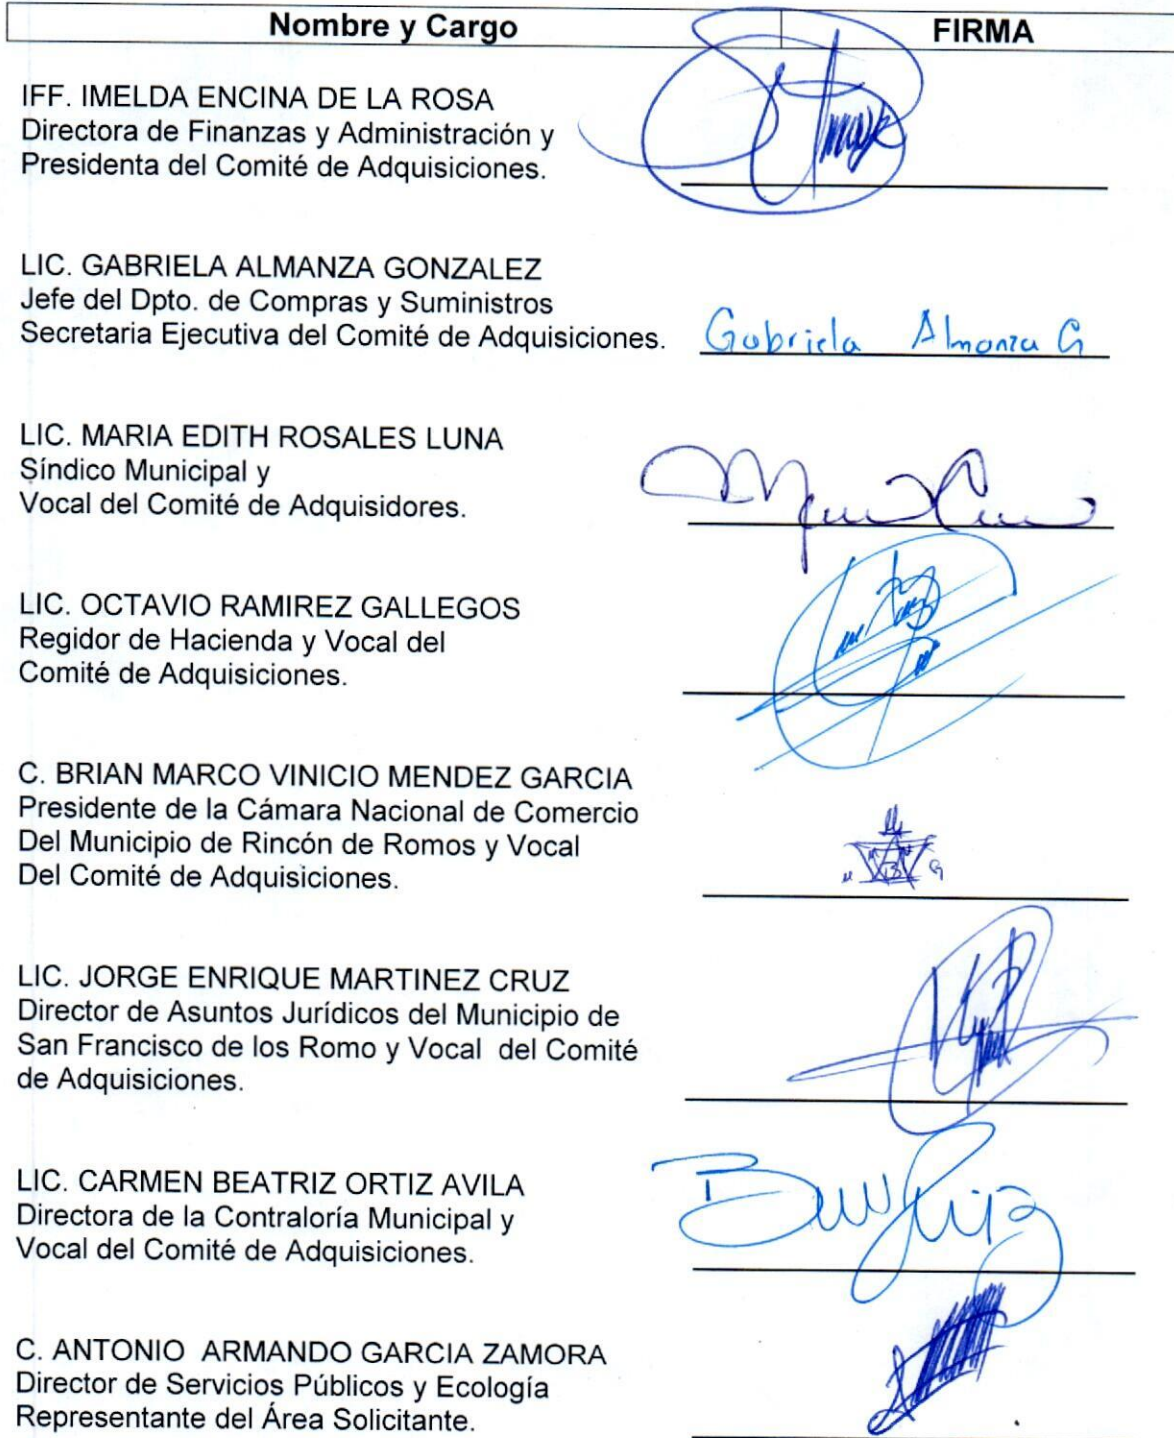 Nombre y Cargo FIRMA
IFF. IMELDA ENCINA DE LA ROSA
Directora de Finanzas y Administración y
Presidenta del Comité de Adquisiciones.
LIC. GABRIELA ALMANZA GONZALEZ
Jefe del Dpto. de Compras y Suministros
Secretaria Ejecutiva del Comité de Adquisiciones. Gabriela Almanza G
LIC. MARIA EDITH ROSALES LUNA
Síndico Municipal y
Vocal del Comité de Adquisidores.
LIC. OCTAVIO RAMIREZ GALLEGOS
Regidor de Hacienda y Vocal del
Comité de Adquisiciones.
C. BRIAN MARCO VINICIO MENDEZ GARCIA
Presidente de la Cámara Nacional de Comercio
Del Municipio de Rincón de Romos y Vocal
Del Comité de Adquisiciones.
LIC. JORGE ENRIQUE MARTINEZ CRUZ
Director de Asuntos Jurídicos del Municipio de
San Francisco de los Romo y Vocal del Comité
de Adquisiciones.
LIC. CARMEN BEATRIZ ORTIZ AVILA
Directora de la Contraloría Municipal y
Vocal del Comité de Adquisiciones.
C. ANTONIO ARMANDO GARCIA ZAMORA
Director de Servicios Públicos y Ecología
Representante del Área Solicitante.